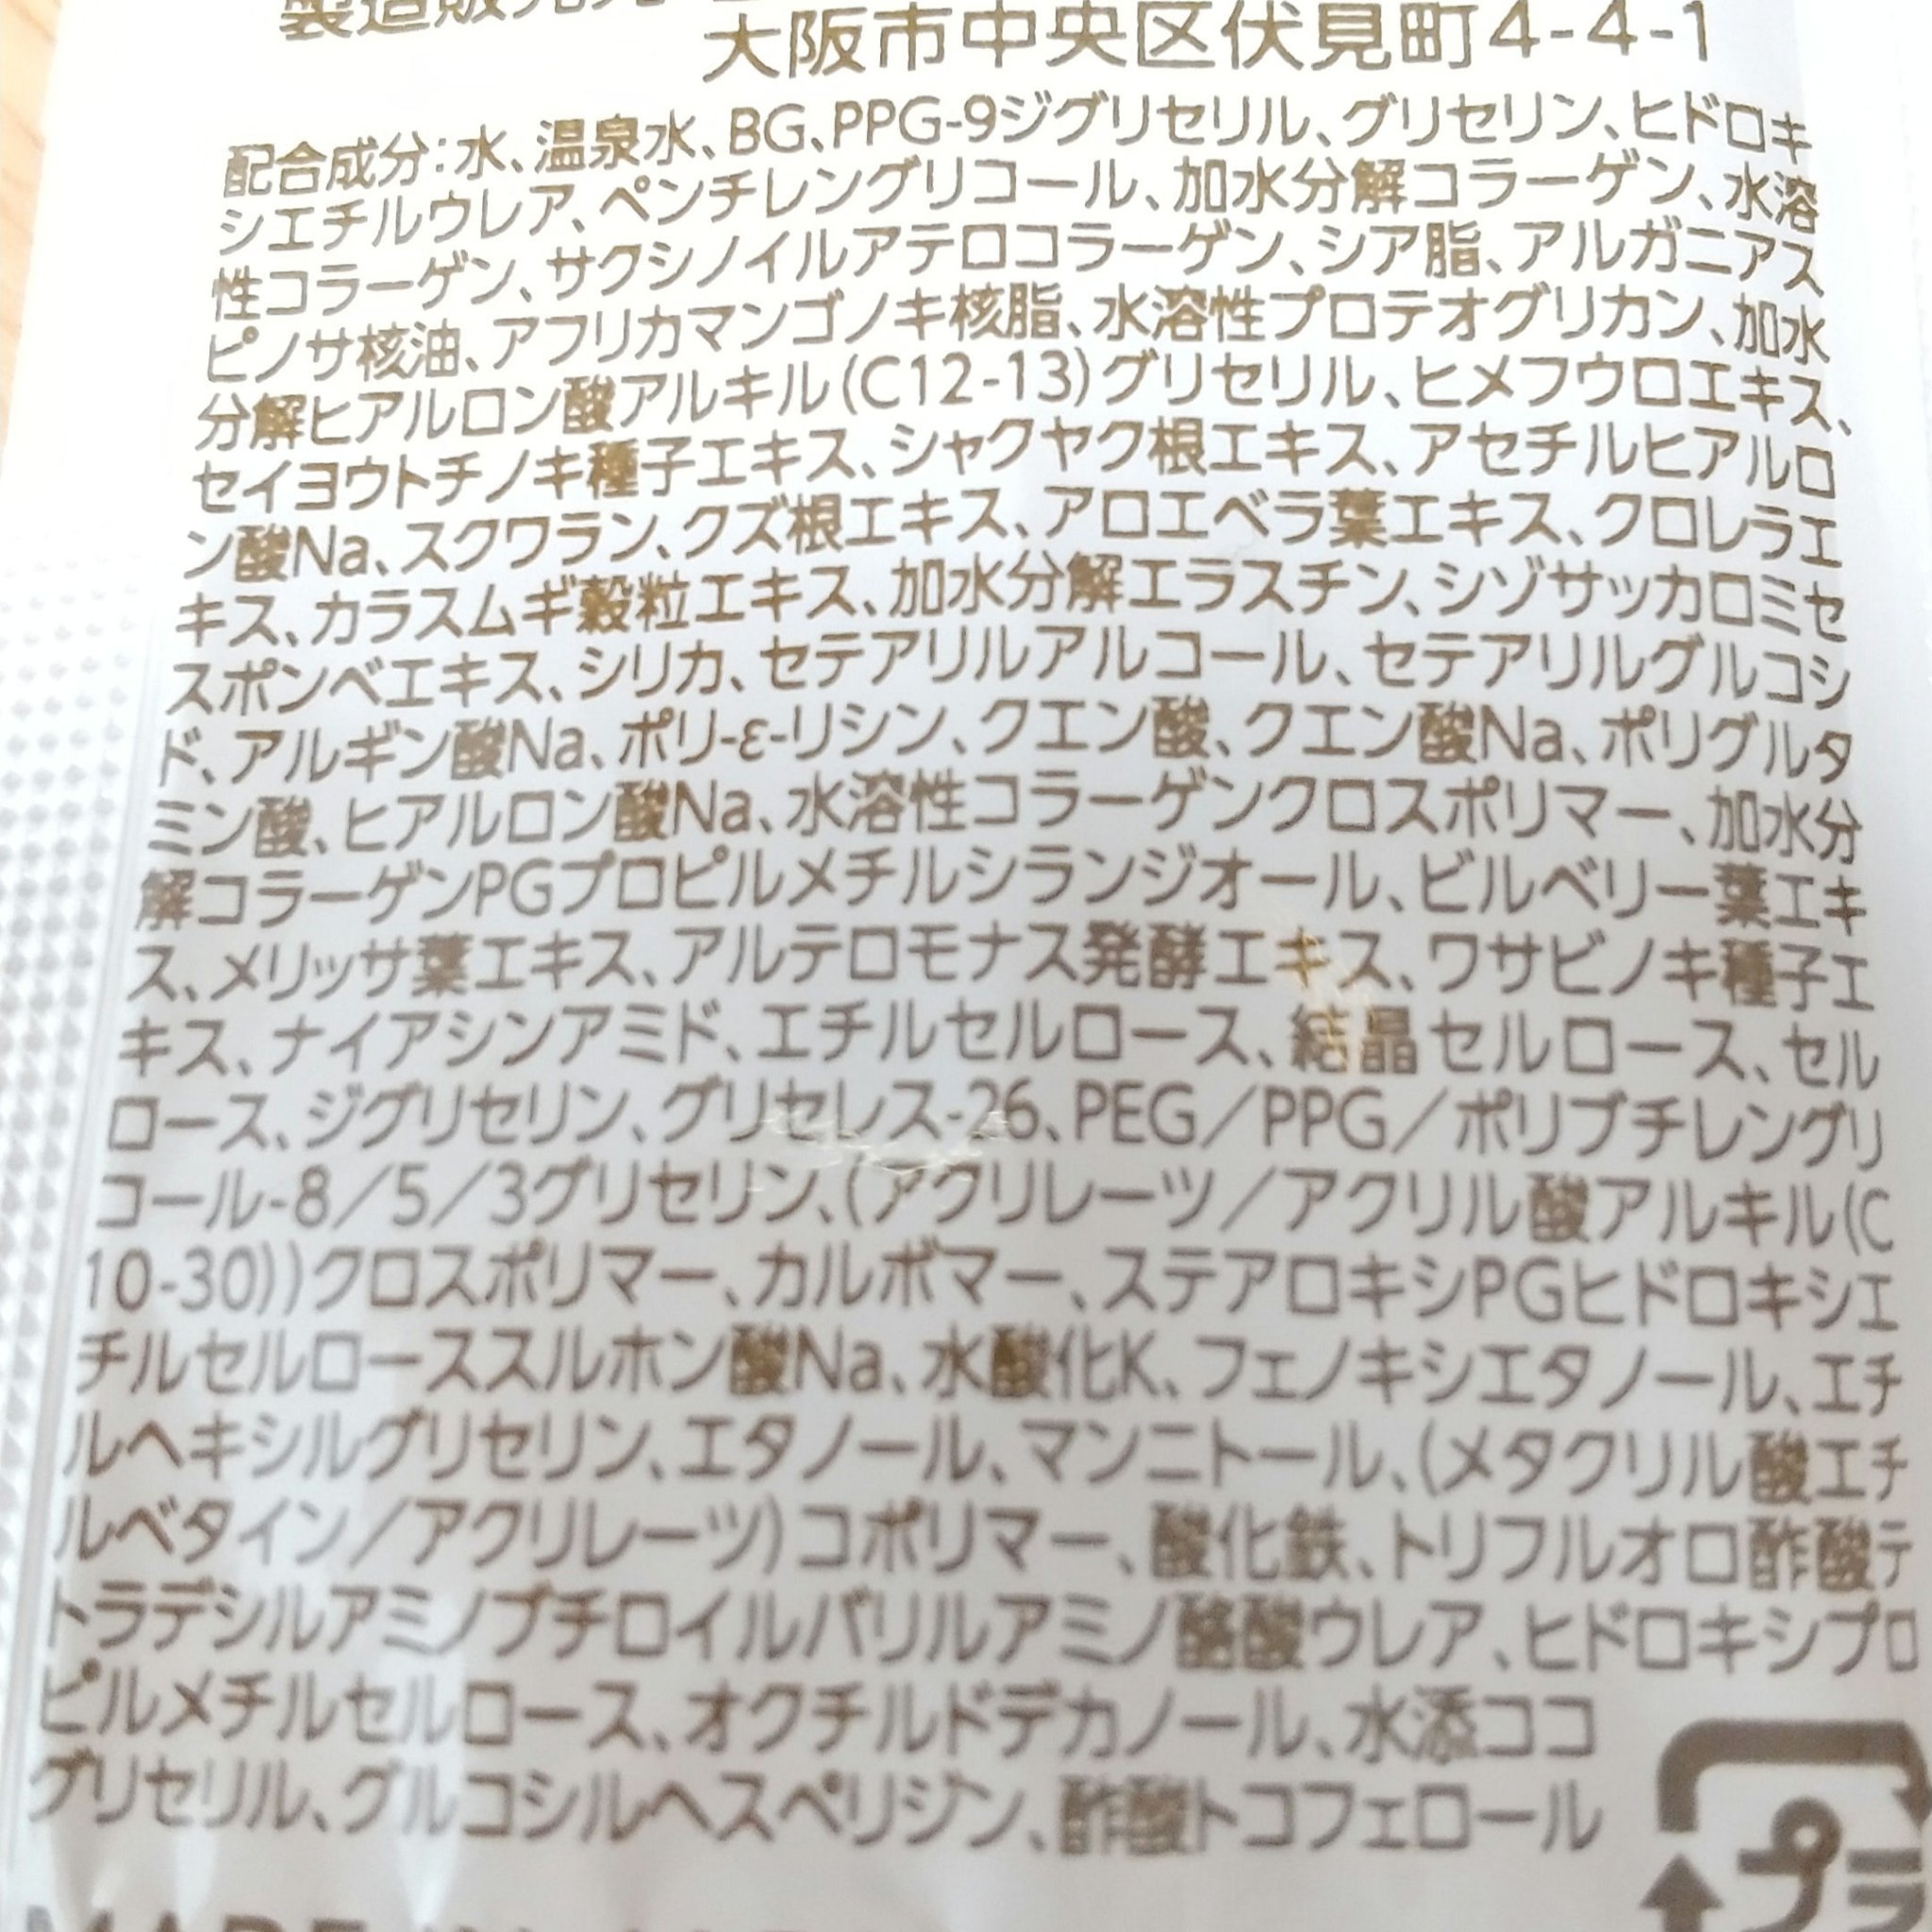 製造販売元
大阪市中央区伏見町4-4-1
配合成分:水、温泉水、BG、PPG-9ジグリセリル、グリセリン、ヒドロキ
シエチルウレア、ペンチレングリコール、加水分解コラーゲン、水溶
性コラーゲン、サクシノイルアテロコラーゲン、シア脂、アルガニアス
ピノサ核油、アフリカマンゴノキ核脂、水溶性プロテオグリカン、加水
分解ヒアルロン酸アルキル(C12-13)グリセリル、ヒメフウロエキス、
セイヨウトチノキ種子エキス、シャクヤク根エキス、アセチルヒアルロ
ン酸Na、スクワラン、クズ根エキス、アロエベラ葉エキス、クロレラエ
キス、カラスムギ穀粒エキス、加水分解エラスチン、シゾサッカロミセ
スポンベエキス、シリカ、セテアリルアルコール、セテアリルグルコシ
ド、アルギン酸Na、ポリ-ε-リシン、クエン酸、クエン酸Na、ポリグルタ
ミン酸、ヒアルロン酸Na、水溶性コラーゲンクロスポリマー、加水分
解コラーゲンPGプロピルメチルシランジオール、ビルベリー葉エキ
ス、メリッサ葉エキス、アルテロモナス発酵エキス、ワサビノキ種子エ
キス、ナイアシンアミド、エチルセルロース、結晶セルロース、セル
ロース、ジグリセリン、グリセレス-26、PEG/PPG/ポリブチレングリ
コール-8/5/3グリセリン、(アクリレーツ/アクリル酸アルキル(C
10-30))クロスポリマー、カルボマー、ステアロキシPGヒドロキシエ
チルセルローススルホン酸Na、水酸化K、フェノキシエタノール、エチ
ルヘキシルグリセリン、エタノール、マンニトール、(メタクリル酸エチ
ルベタイン/アクリレーツ)コポリマー、酸化鉄、トリフルオロ酢酸テ
トラデシルアミノブチロイルバリルアミノ酪酸ウレア、ヒドロキシプロ
ピルメチルセルロース、オクチルドデカノール、水添ココ
グリセリル、グルコシルヘスペリジン、酢酸トコフェロール
プラ